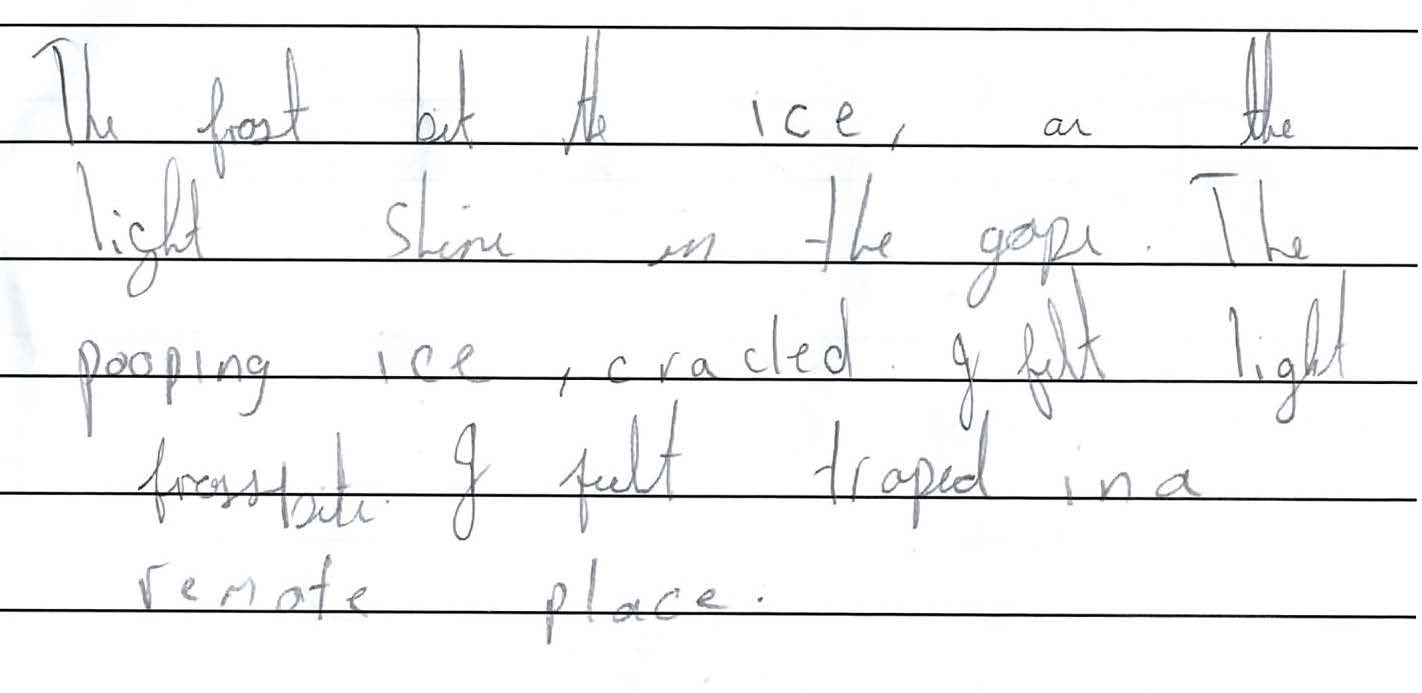 The frost bit the ice, as the
light shine in the gaps. The
pooping ice, cracled. I felt light
frosstbite. I felt traped in a
remote place.